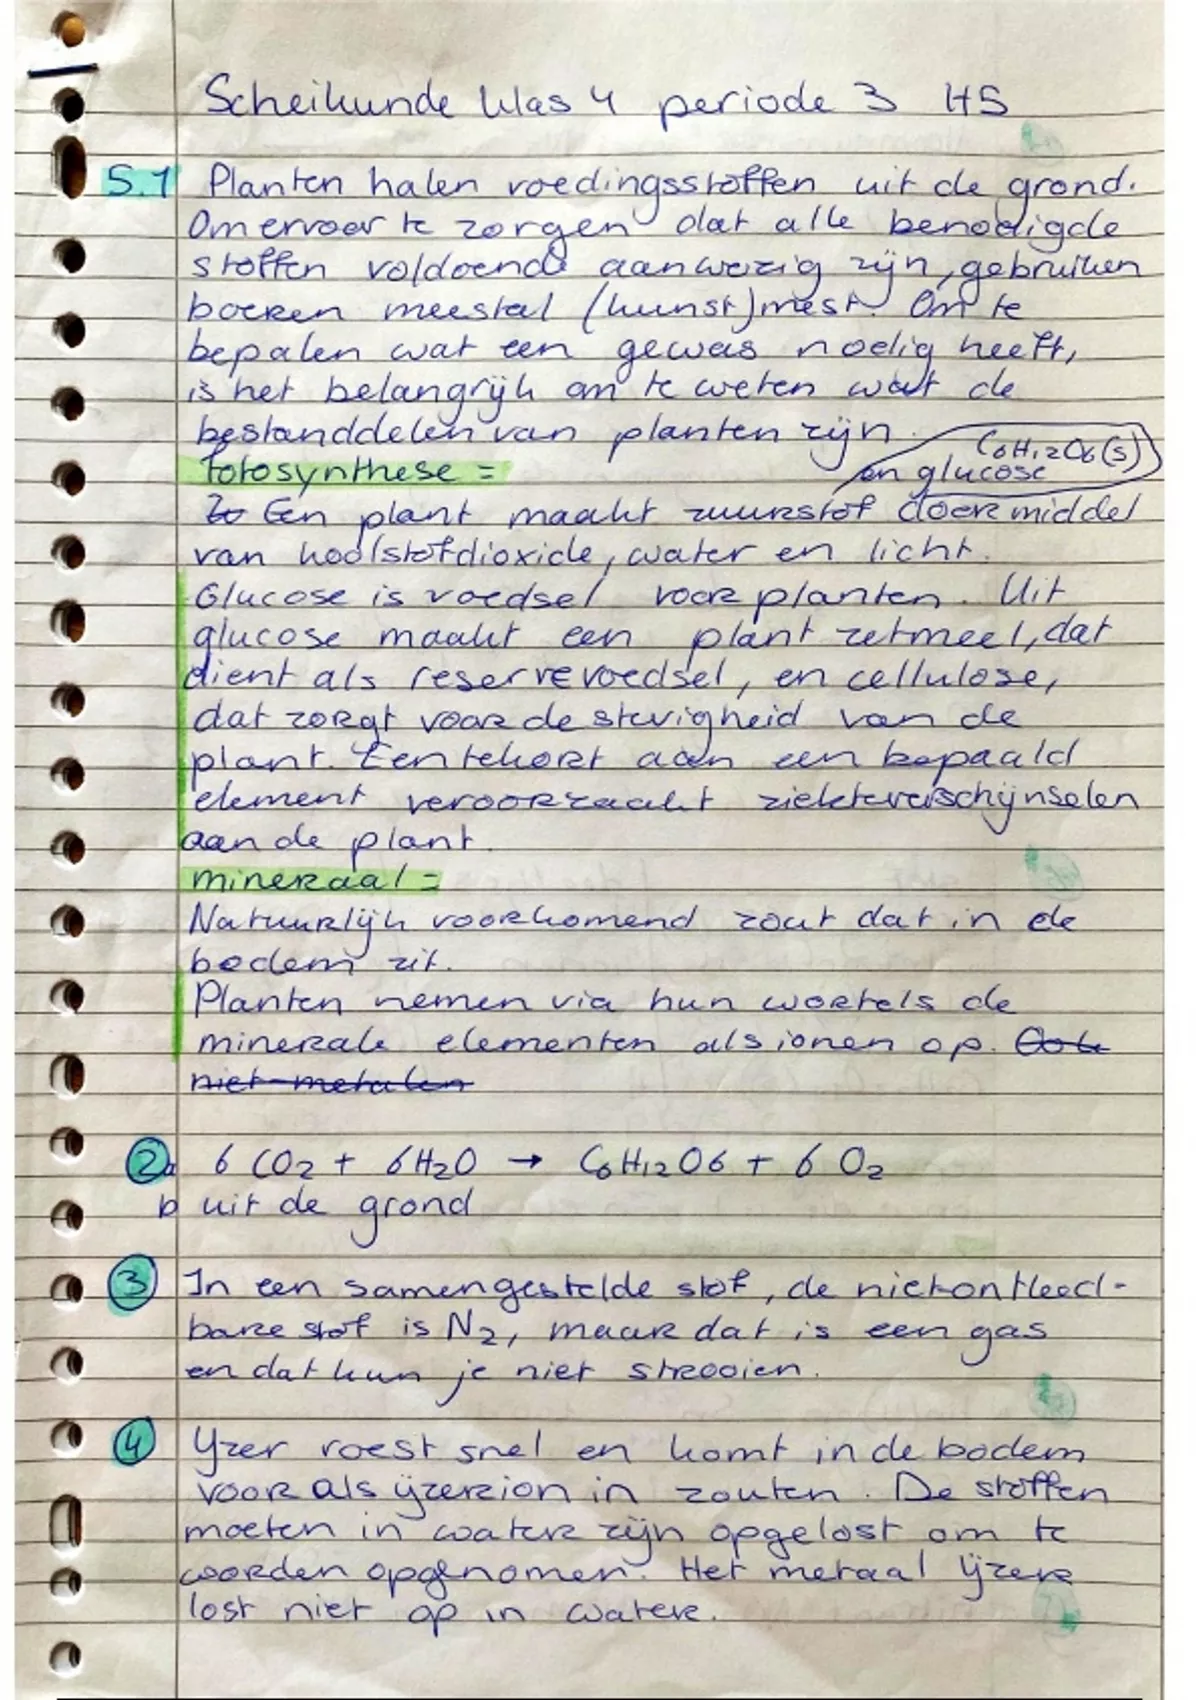 Scheikunde klas 4 periode 3 H5
5.1 Planten halen voedingsstoffen uit de grond.
Om ervoor te zorgen dat alle benodigde
stoffen voldoende aanwezig zijn, gebruiken
boeren meestal (kunst)mest. Om te
bepalen wat een gewas nodig heeft,
is het belangrijk om te weten wat de
bestanddelen van planten zijn.
fotosynthese =
en glucose C6H12O6(s)
Zo Een plant maakt zuurstof door middel
van koolstofdioxide, water en licht.
Glucose is voedsel voor planten. Uit
glucose maakt een plant zetmeel, dat
dient als reservevoedsel, en cellulose,
dat zorgt voor de stevigheid van de
plant. Een tekort aan een bepaald
element veroorzaakt ziekteverschijnselen
aan de plant.
mineraal =
Natuurlijk voorkomend zout dat in de
bodem zit.
Planten nemen via hun wortels de
minerale elementen als ionen op. Ook
niet-metalen
2a 6 CO2 + 6H2O → C6H12O6 + 6 O2
b uit de grond
3 In een samengestelde stof, de niet ontleed-
bare stof is N2, maar dat is een gas
en dat kun je niet strooien.
4 Yzer roest snel en komt in de bodem
voor als ijzerion in zouten. De stoffen
moeten in water zijn opgelost om te
worden opgenomen. Het metaal ijzer
lost niet op in water.